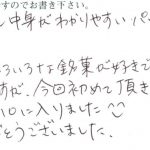 すのでお書き下さい。
中身がわかりやすいパ
ろいろな銘菓が好きで
すが、今回初めて頂き
口に入りました
とうございました。